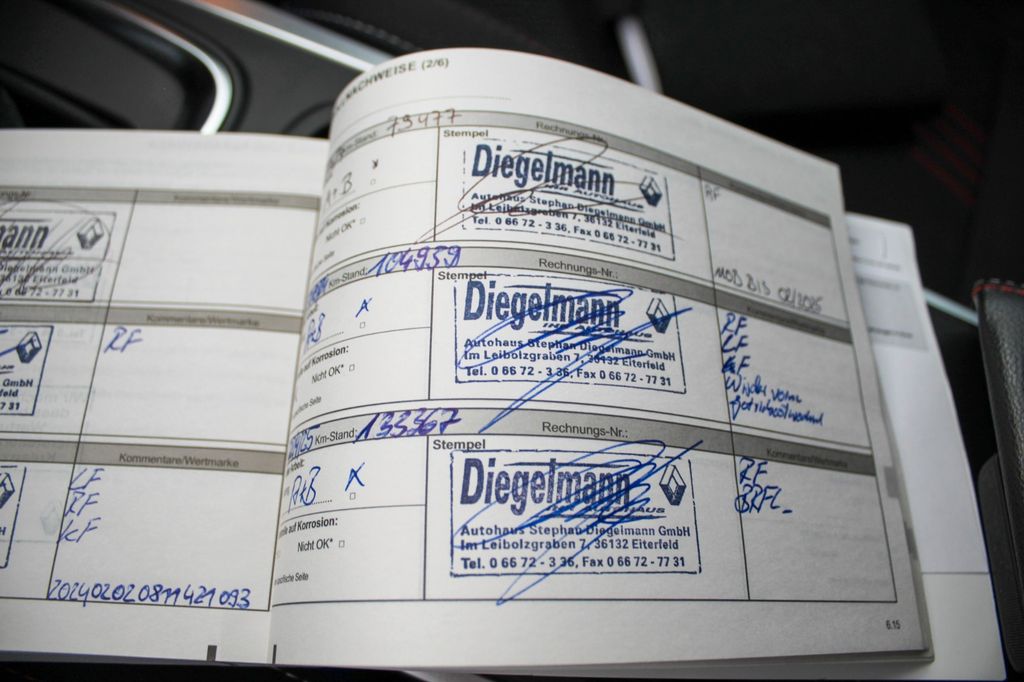 Kommentare/Wertmarke
ann
Diegelmann GmbH
36132 Eiterfeld
0 66 72 - 77 31
Kommentare/Wertmarke
RF
GmbH
7 31
Kommentare/Wertmarke
LF
RF
KF
20240202081142 1 093
NACHWEISE (2/6)
Km-Stand: 73477
Stempel
Rechnungs-Nr.
Diegelmann
IHR AUTOHAUS
Autohaus Stephan Diegelmann GmbH
Im Leibolzgraben 7, 36132 Eiterfeld
Tel. 0 66 72 - 3 36, Fax 0 66 72 - 77 31
A+B
Korrosion:
Nicht OK*
Seite
RF
MOB BIS 02/2025
Km-Stand: 104939
Stempel
Rechnungs-Nr.:
Diegelmann
IHR AUTOHAUS
Autohaus Stephan Diegelmann GmbH
Im Leibolzgraben 7, 36132 Eiterfeld
Tel. 0 66 72 - 3 36, Fax 0 66 72 - 77 31
auf Korrosion:
Nicht OK*
Seite
RF
LF
Wischer vorne
Km-Stand: 133367
Stempel
Rechnungs-Nr.:
Kommentare/Wertmarke
Diegelmann
IHR AUTOHAUS
Autohaus Stephan Diegelmann GmbH
Im Leibolzgraben 7, 36132 Eiterfeld
Tel. 0 66 72 - 3 36, Fax 0 66 72 - 77 31
A+B
auf Korrosion:
Nicht OK*
Seite
RF
BRFL
6.15